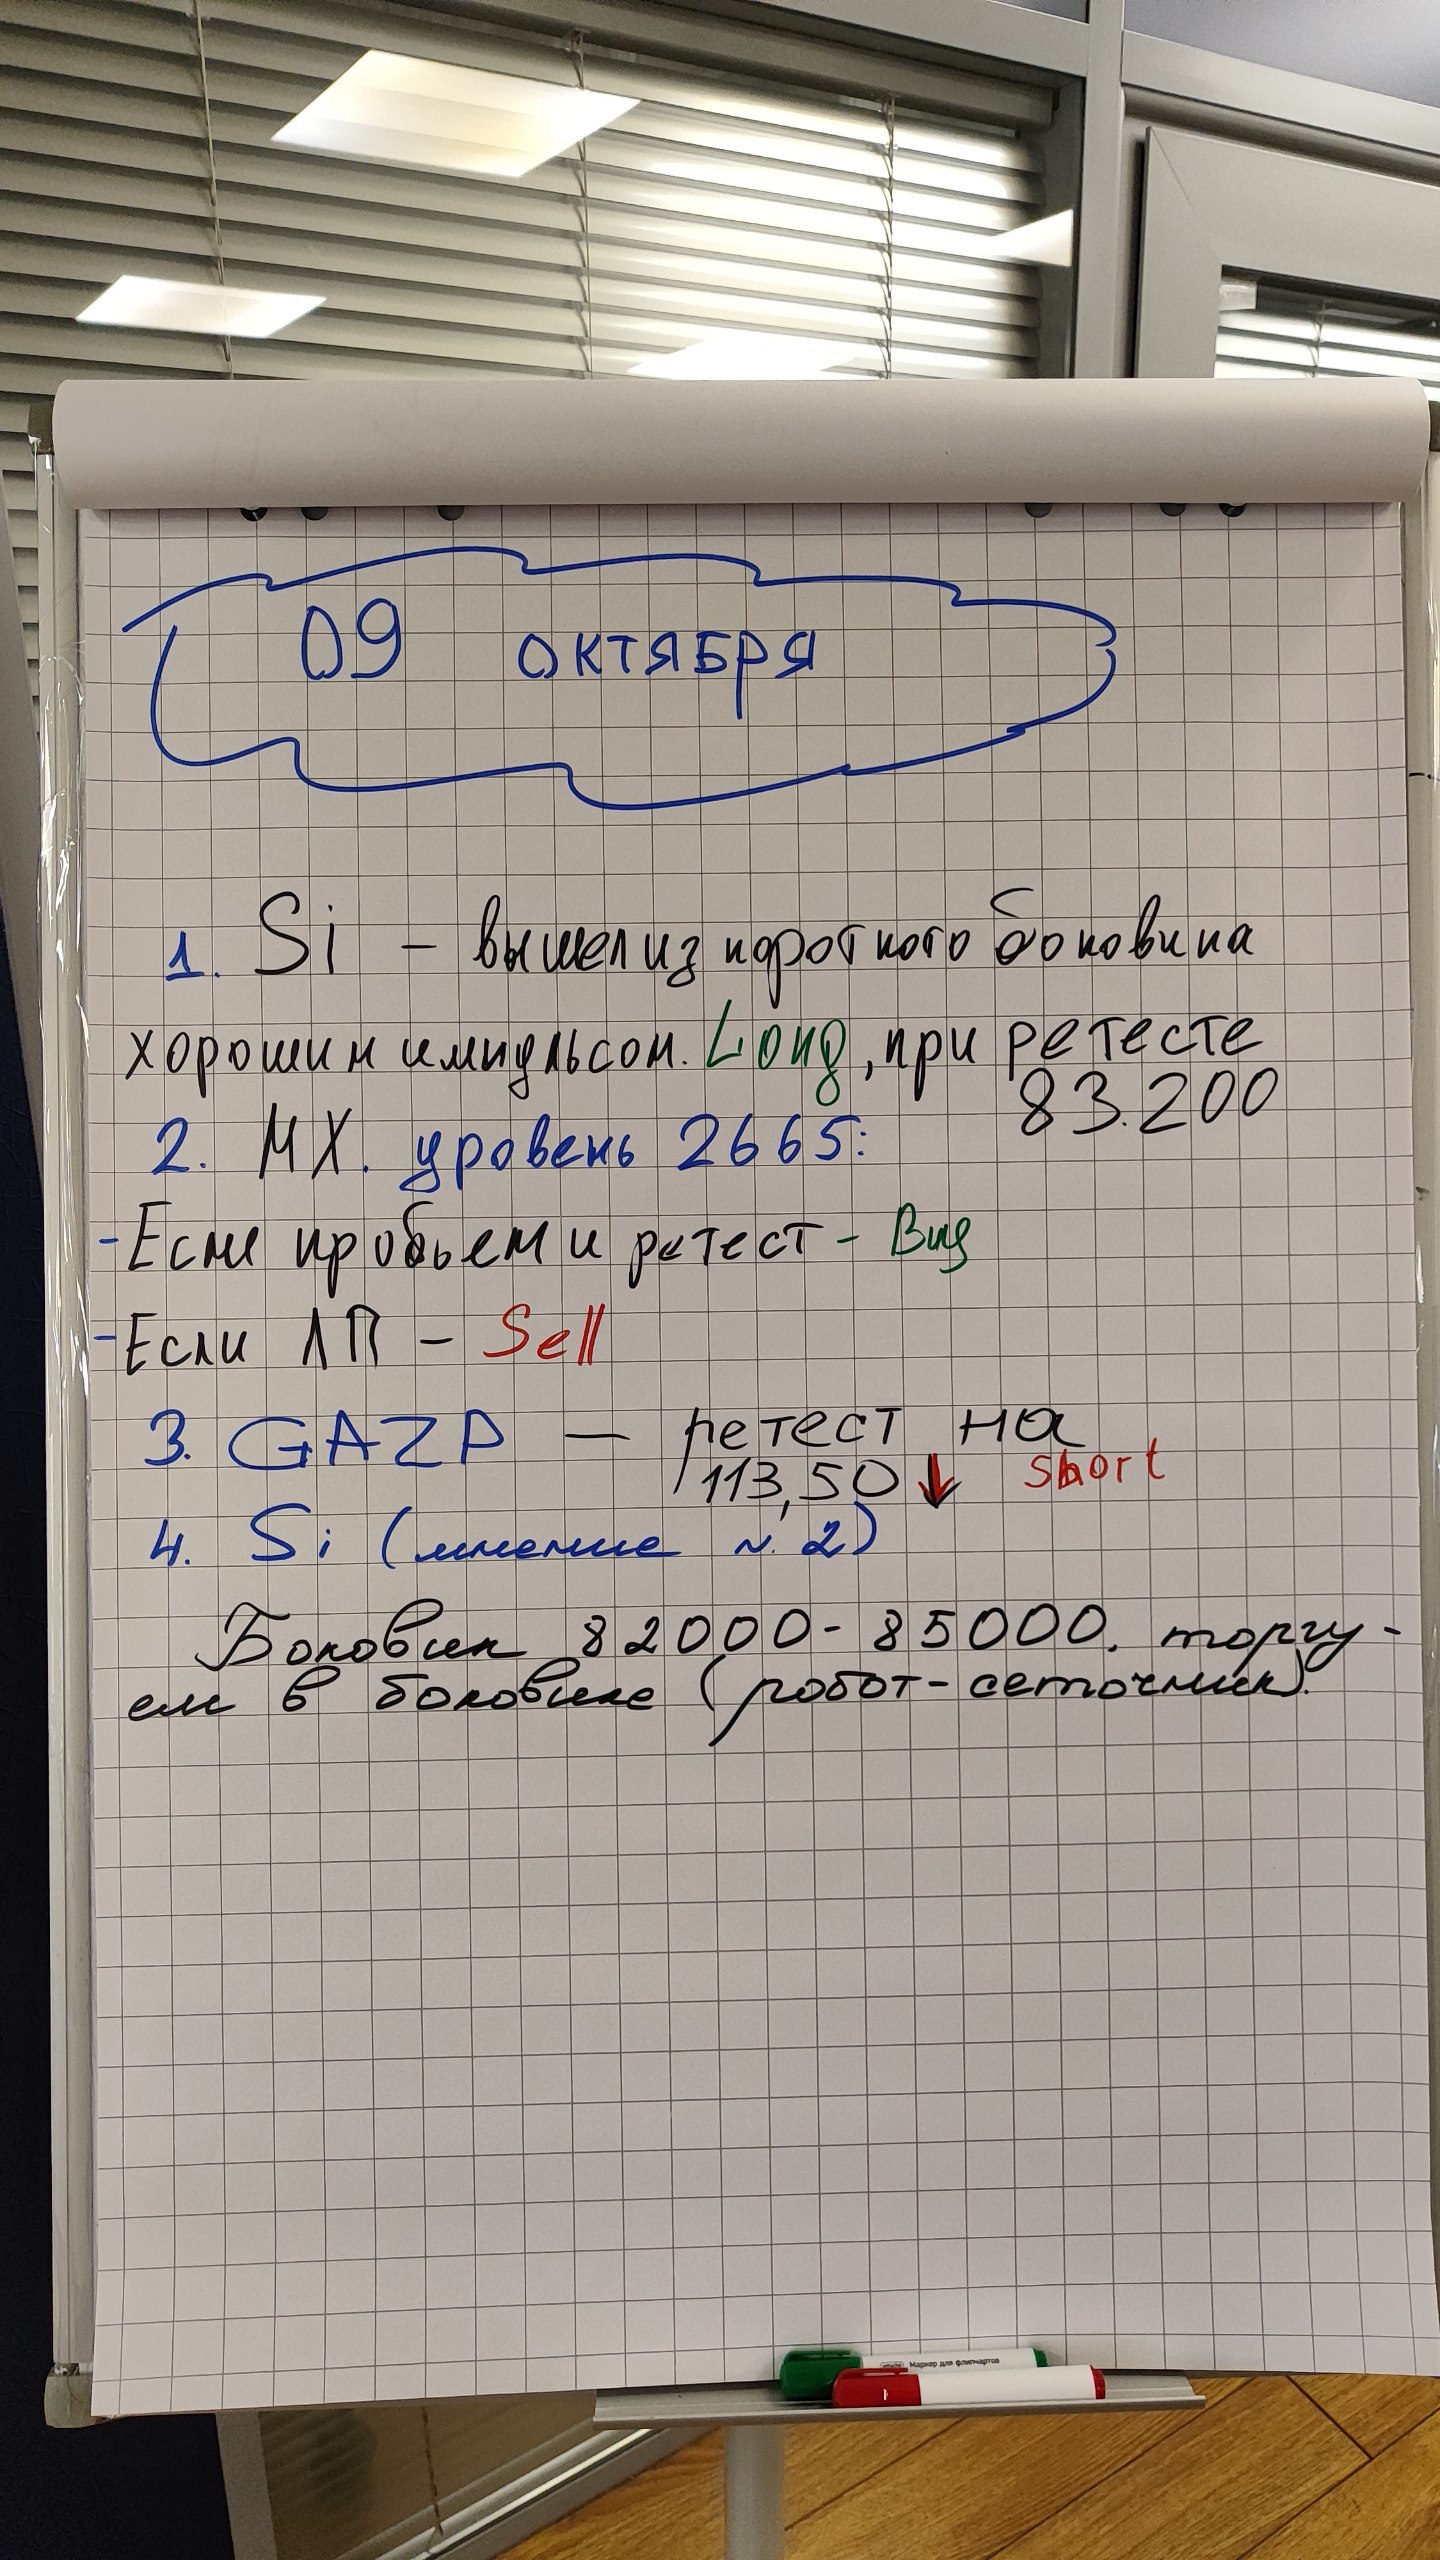 09 октября
1. Si - вышел из короткого боковика
хорошим импульсом. Long, при ретесте
83.200
2. MX. уровень 2665:
- Если пробьем и ретест - Buy
- Если ЛП - Sell
3. GAZP — ретест на
113,50 ↓ Short
4. Si (мнение №2)
Боковик 82000-85000. торгу-
ем в боковике (робот-сеточник).
Маркер для флипчартов